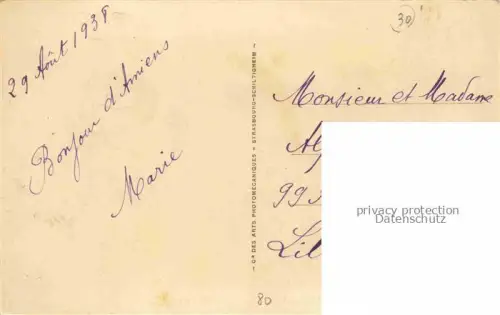 29 Août 1938
Bonjour d'Amiens
Marie
— Cie DES ARTS PHOTOMÉCANIQUES • STRASBOURG-SCHILTIGHEIM —
30
Monsieur et Madame
99
80
privacy protection
Datenschutz